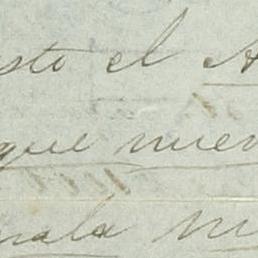 sto el A
que nuev
nala nu